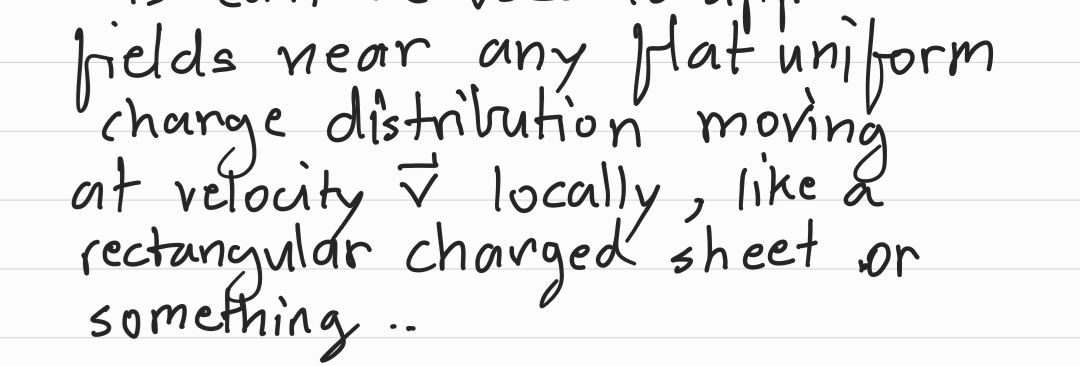 fields near any flat uniform
change distribution moving
at velocity v⃗ locally, like a
rectangular charged sheet or
something ..